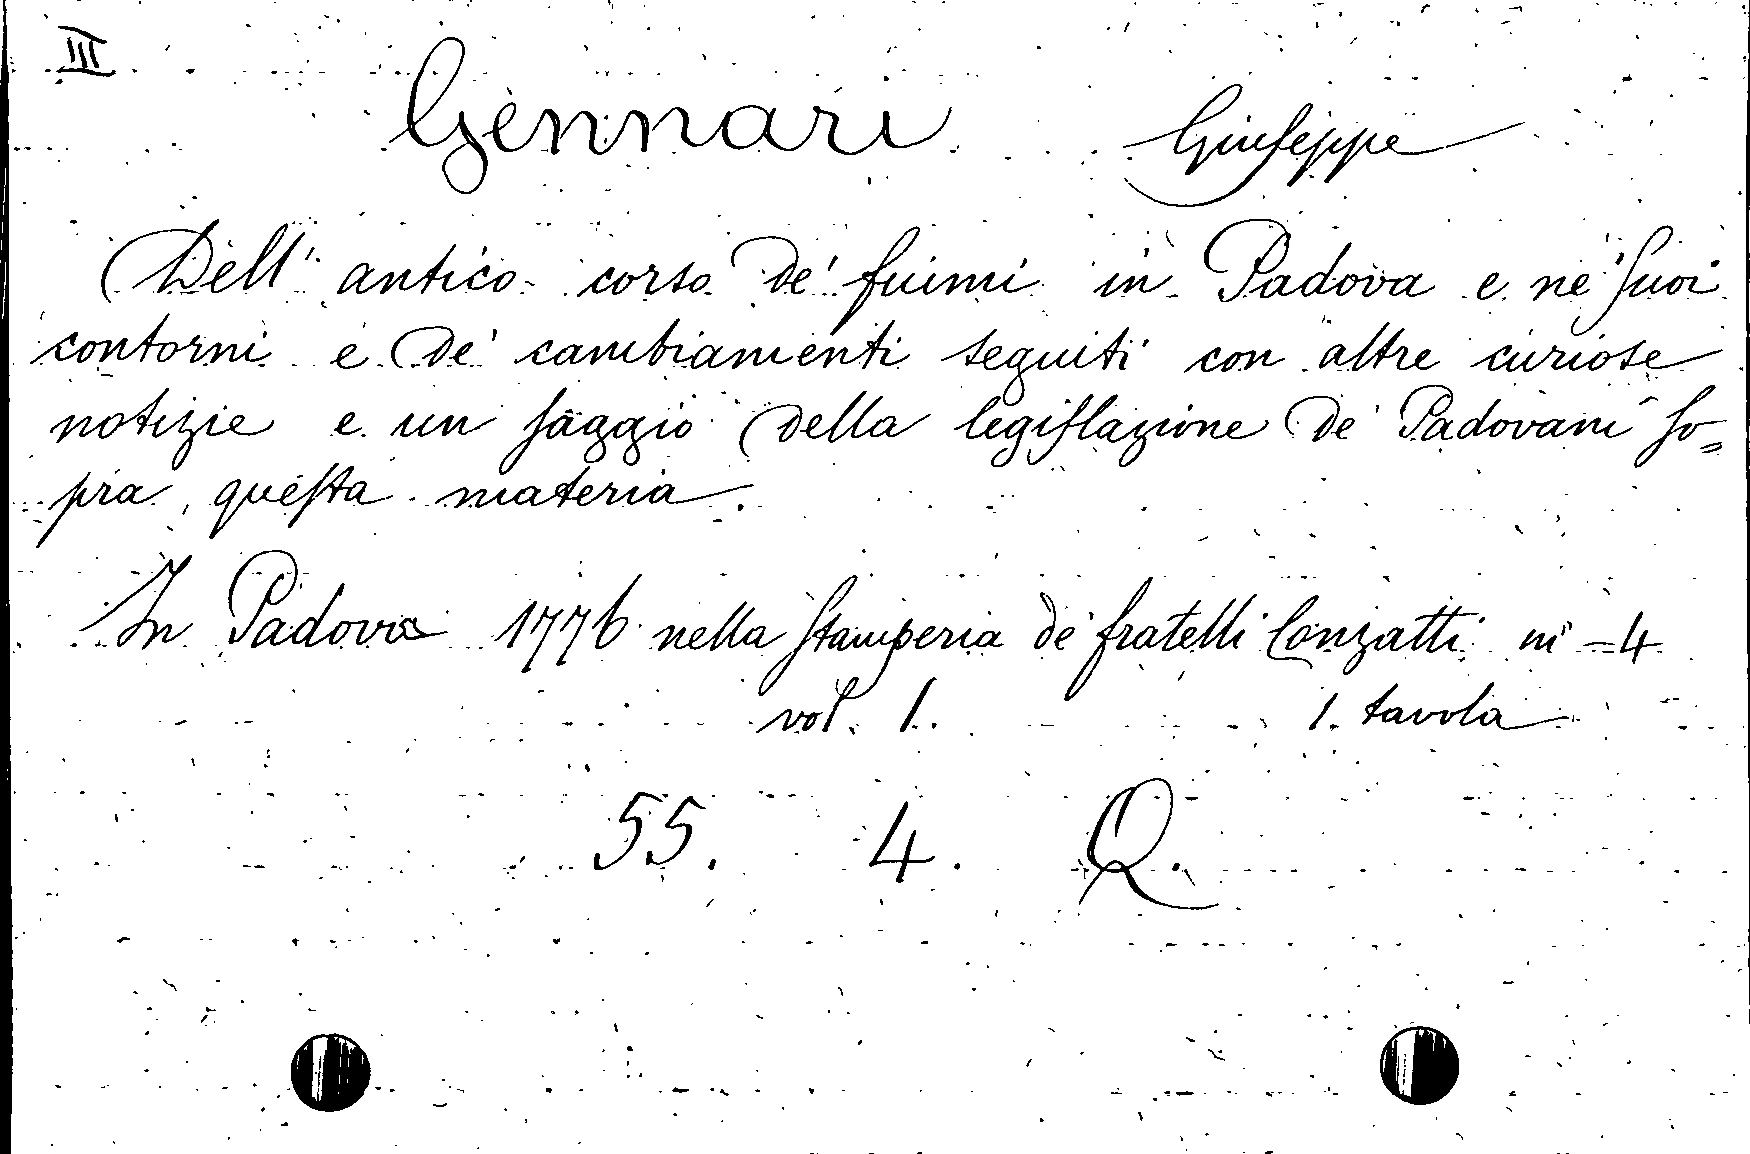 III
Gennari Giuseppe
Dell' antico corso de' fiumi in Padova e ne' suoi
contorni e de' cambiamenti seguiti con altre curiose
notizie e un saggio della legislazione de' Padovani so=
pra questa materia.
In Padova 1776 nella Stamperia de' fratelli Conzatti in-4
vol. 1. 1. tavola
55. 4. Q.